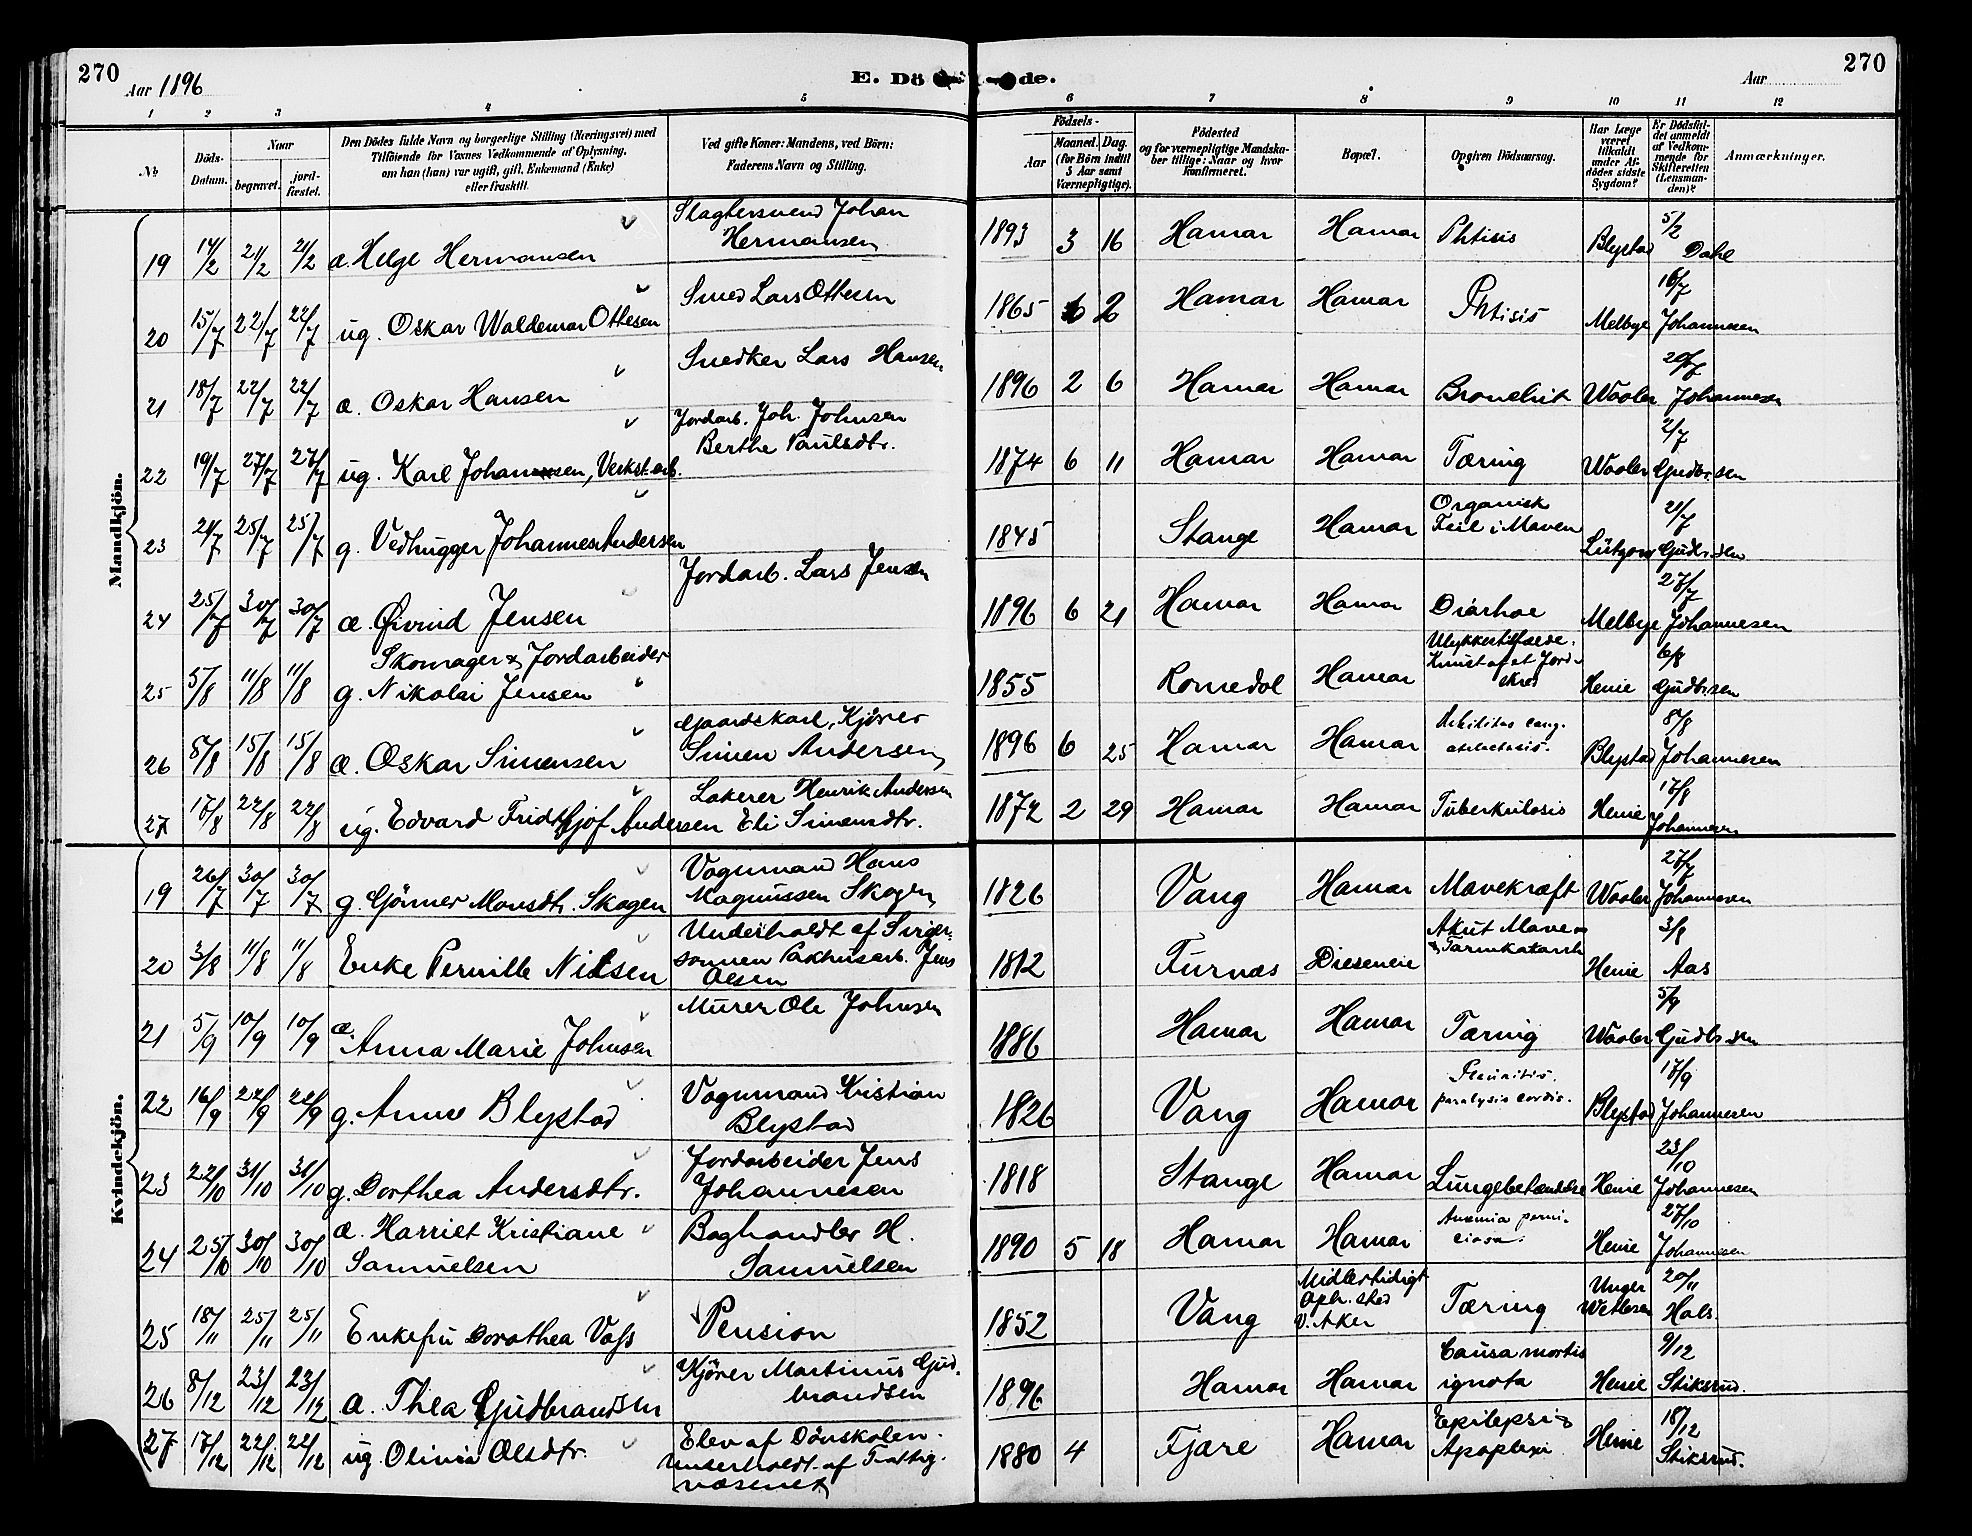 270
Aar 1896
E. Dö de.
Aar
270
1 2 3 4 5 6 7 8 9 10 11 12
No
Döds-Datum.
Naar
begravet.
jord-fæstet.
Den Dödes fulde Navn og borgerlige Stilling (Næringsvei) med
Tilföiende for Voxnes Vedkommende af Oplysning,
om han (hun) var ugift, gift, Enkemand (Enke)
eller fraskilt.
Ved gifte Koner: Mandens, ved Börn:
Faderens Navn og Stilling.
Födsels-
Aar
Maaned. Dag.
(for Börn indtil
5 Aar samt
Værnepligtige).
Födested
og for værnepligtige Mandska-
ber tillige: Naar og hvor
konfirmeret.
Bopæl.
Opgiven Dödsaarsag.
Har Læge
været
tilkaldt
under Af-
dödes sidste
Sygdom?
Er Dödsfal-
det anmeldt
af Vedkom-
mende for
Skifteretten
(Lensman-
den)?
Anmærkninger.
Mandkjön.
19 14/2 21/2 21/2 æ. Helge Hermansen Slagtersvend Johan Hermansen 1893 3 16 Hamar Hamar Phtisis Blystad 5/2 Dahl
20 15/7 22/7 22/7 ug. Oskar Waldemar Ottesen Smed Lars Ottesen 1865 6 2 Hamar Hamar Phtisis Melbye 16/7 Johannesen
21 18/7 22/7 22/7 æ. Oskar Hansen Snedker Lars Hansen 1896 2 6 Hamar Hamar Bronchit Waaler 20/7 Johannesen
22 19/7 27/7 27/7 ug. Karl Johansen, Verkst.arb. Jordarb. Joh. Johnsen Berthe Paulsdtr. 1874 6 11 Hamar Hamar Tæring Waaler 21/7 Gudbr.sen
23 21/7 25/7 25/7 g. Vedhugger Johannes Andersen 1845 Stange Hamar Organisk Feil i Maven Lützow 21/7 Gudbr.sen
24 25/7 30/7 30/7 æ. Øivind Jensen Jordarb. Lars Jensen 1896 6 21 Hamar Hamar Diarhoe Melbye 27/7 Johannesen
25 5/8 11/8 11/8 Skomager & Jordarbeider g. Nikolai Jensen 1855 Romedal Hamar Ulykkestilfælde. Knust af et Jord-skred Heme 6/8 Gudbr.sen
26 8/8 15/8 15/8 æ. Oskar Simensen Gaardskarl, Kjörer Simen Andersen 1896 6 25 Hamar Hamar Debilitas cong. atelectasis. Blystad 8/8 Johannesen
27 17/8 22/8 22/8 ug. Edvard Fridtjof Andersen Lakerer Henrik Andersen Eli Simensdtr. 1872 2 29 Hamar Hamar Tuberkulosis Heme 17/8 Johannesen
Kvindekjön.
19 26/7 30/7 30/7 g. Gönner Monsdtr. Skogen Vognmand Hans Magnussen Skogen 1826 Vang Hamar Mavekræft Waaler 27/7 Johannesen
20 3/8 11/8 11/8 Enke Pernille Nilsen Underholdt af Sviger-sönnen Pakhusarb. Jens Olsen 1812 Furnæs Disen eie Akut Mave- & Tarmkatarrh Heme 3/8 Aas
21 5/9 10/9 10/9 æ. Anna Marie Johnsen Murer Ole Johnsen 1886 Hamar Hamar Tæring Waaler 5/9 Gudbr.sen
22 16/9 22/9 22/9 g. Anne Blystad Vognmand Kristian Blystad 1826 Vang Hamar Pleuritis. paralysis cordis. Blystad 17/9 Johannesen
23 22/10 31/10 31/10 g. Dorthea Andersdtr. Jordarbeider Jens Johannesen 1818 Stange Hamar Lungebetændelse Heme 23/10 Johannesen
24 25/10 30/10 30/10 æ. Harriet Kristiane Samuelsen Boghandler H. Samuelsen 1890 5 18 Hamar Hamar Anæmia perni-ciosa. Heme 27/10 Johannesen
25 18/11 25/11 25/11 Enkefru Dorothea Voss Pension 1852 Vang Midlertidigt Oph.sted V. Aker Tæring Unger Wetlesen 20/11 Hals
26 8/12 23/12 23/12 æ. Thea Gudbrandsen Kjörer Martinus Gud-brandsen 1896 Hamar Hamar Causa mortis ignota Heme 9/12 Stiksrud.
27 17/12 22/12 22/12 ug. Olivia Olsdtr. Elev af Dövskolen. Underholdt af Fattig-væsenet 1880 4 Fjære Hamar Epilepsi Apoplexi Heme 18/12 Stiksrud.